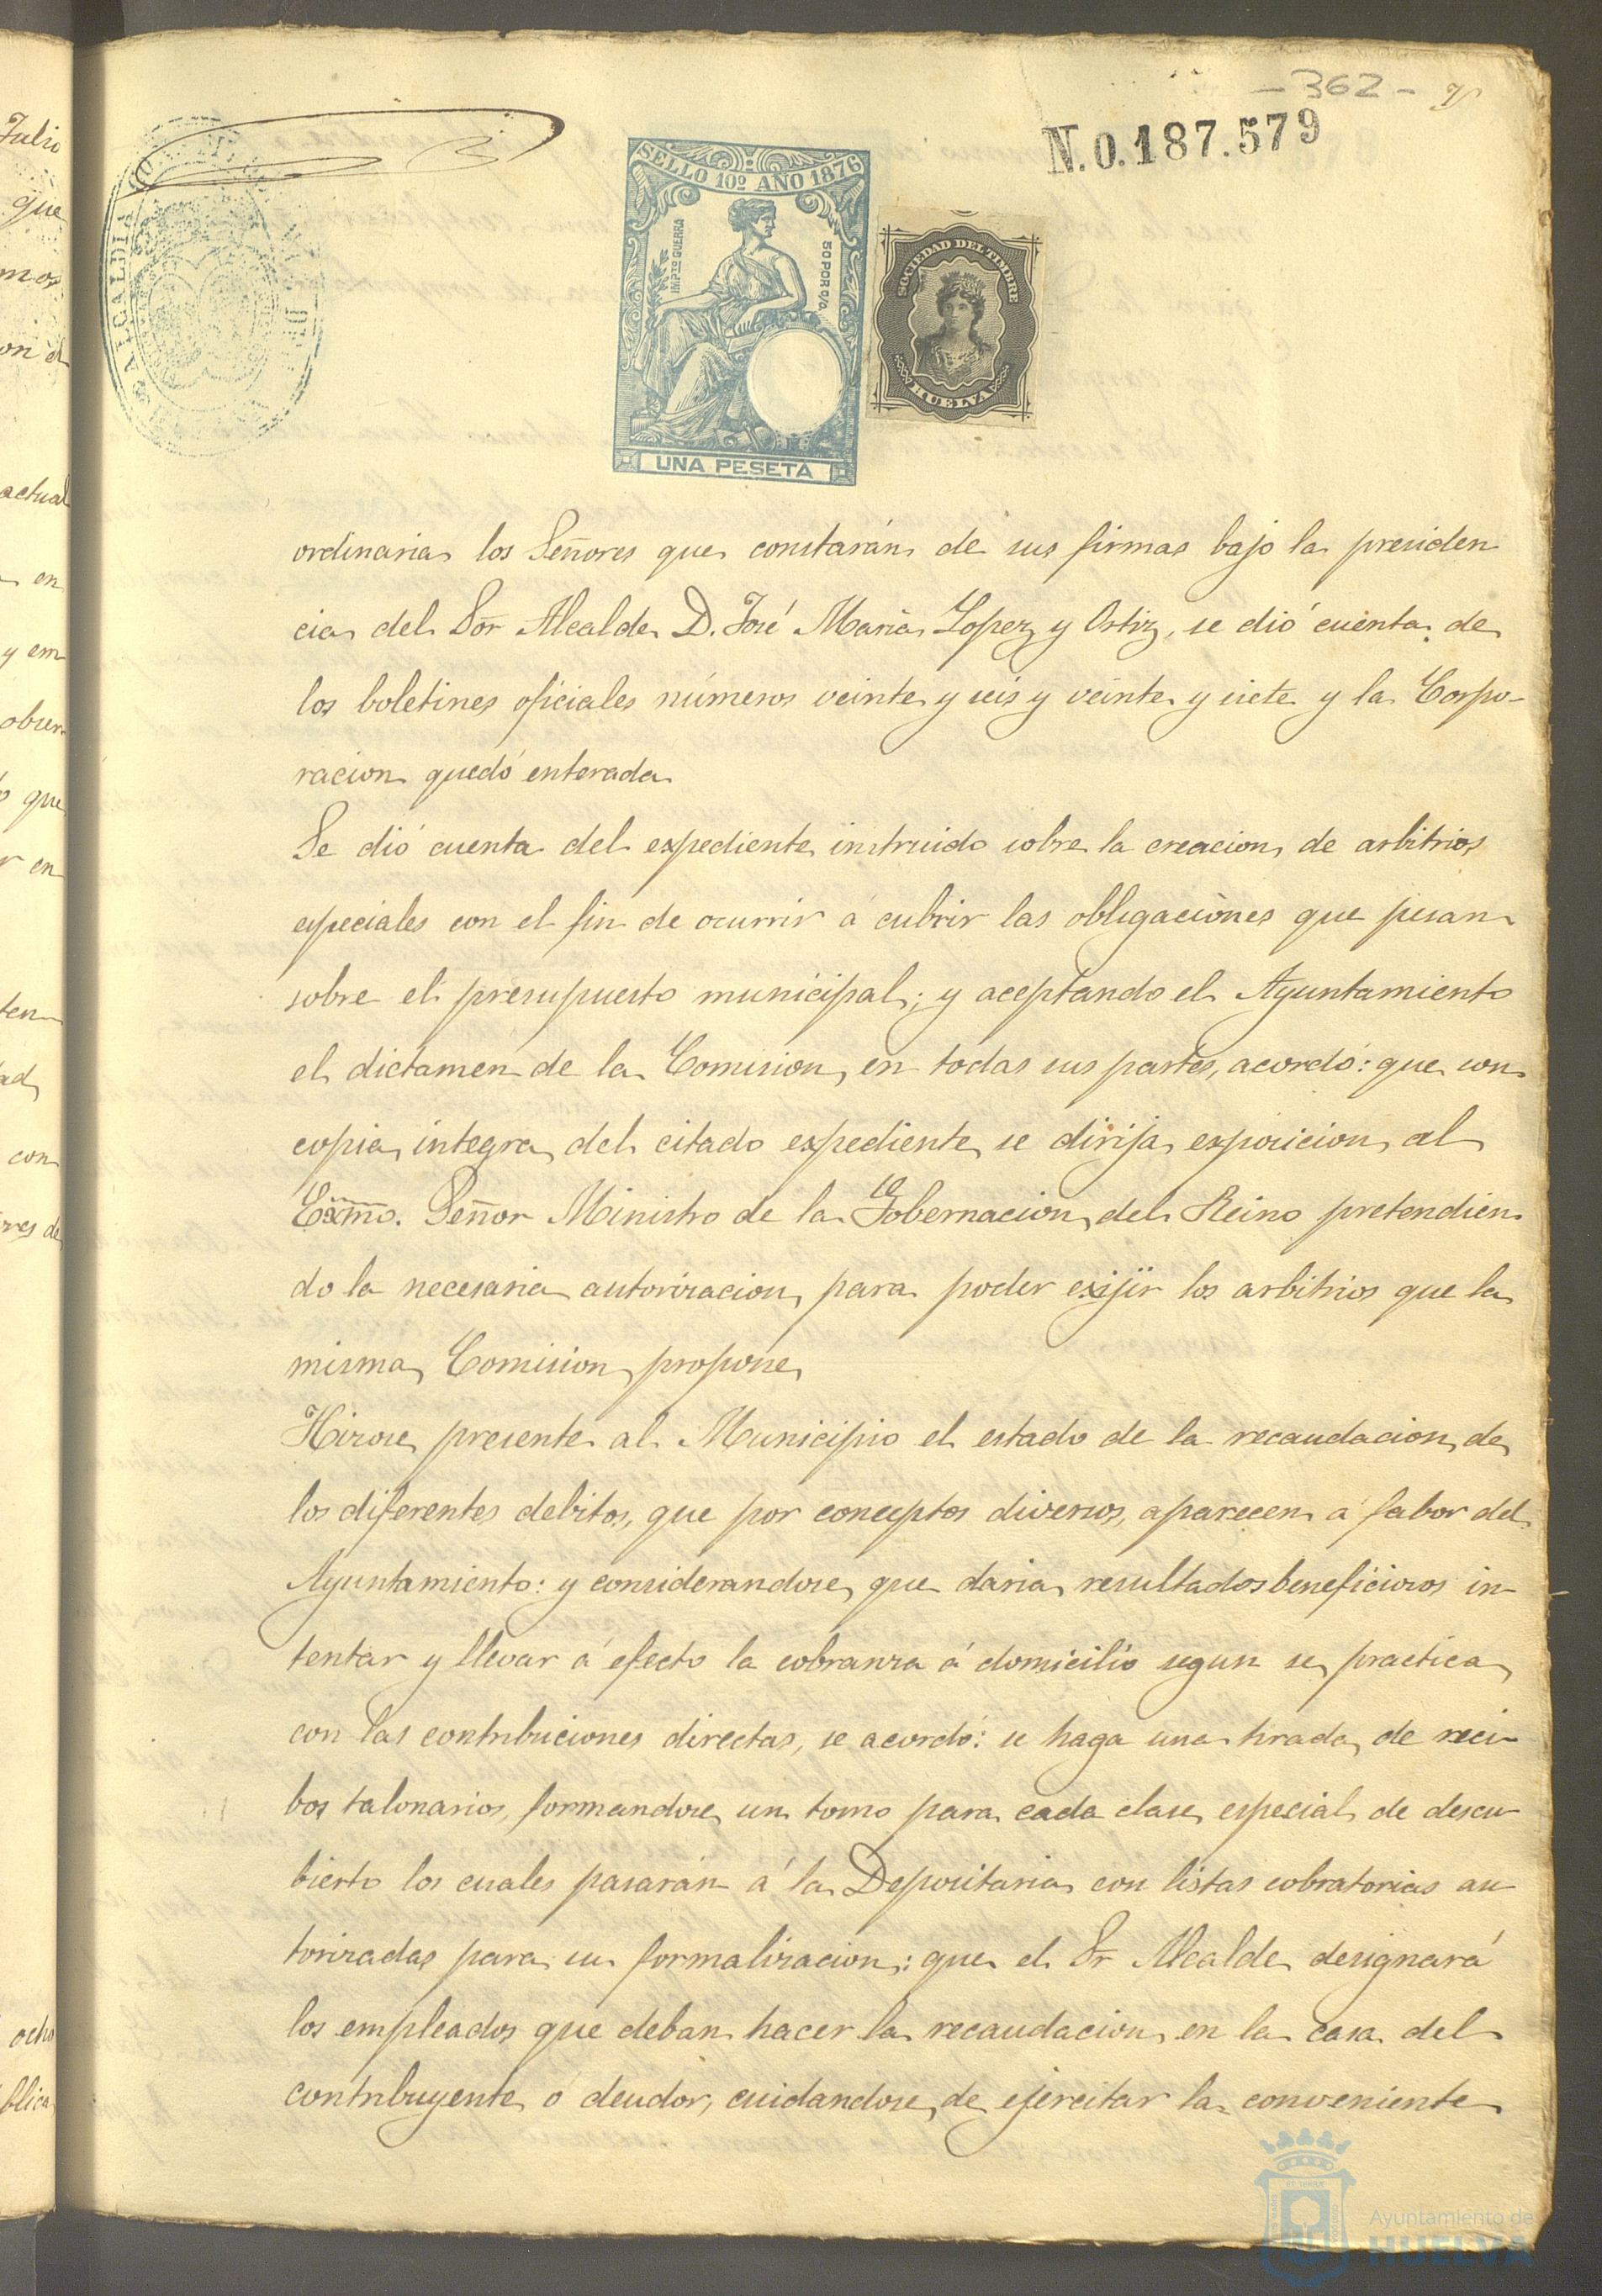 - 362 -
N.0.187.579
SELLO 10º AÑO 1876
IMPTO GUERRA
50 POR C/O
UNA PESETA
SOCIEDAD DEL TIMBRE
HUELVA
ALCALDIA
ordinaria los Señores que constarán de sus firmas bajo la presiden
cia del Sor Alcalde D. José Maria Lopez y Ortiz, se dió cuenta de
los boletines oficiales números veinte y seis y veinte y siete y la Corpo-
racion quedó enterada
Se dió cuenta del expediente instruido sobre la creacion de arbitrios
especiales con el fin de ocurrir á cubrir las obligaciones que pesan
sobre el presupuesto municipal; y aceptando el Ayuntamiento
el dictamen de la Comision en todas sus partes, acordó: que con
copia integra del citado expediente se dirija exposicion al
Exmo. Señor Ministro de la Gobernacion del Reino pretendien
do la necesaria autorizacion para poder exijir los arbitrios que la
misma Comision propone
Hizose presente al Municipio el estado de la recaudacion de
los diferentes debitos, que por conceptos diversos, aparecen á fabor del
Ayuntamiento: y considerandose que daria resultados beneficiosos in-
tentar y llevar á efecto la cobranza á domicilio segun se practica
con las contribuciones directas, se acordó: se haga una tirada de reci-
bos talonarios, formandose un tomo para cada clase especial de descu-
bierto los cuales pasarán á la Depositaria con listas cobratorias au-
torizadas para su formalizacion: que el Sr Alcalde designará
los empleados que deban hacer la recaudacion en la casa del
contribuyente ó deudor, cuidandose de ejercitar la conveniente
Julio
que
mos
on el
actual
en
y em
obser
que
r en
ten
ad
con
res de
ocho
blica
Ayuntamiento de
HUELVA